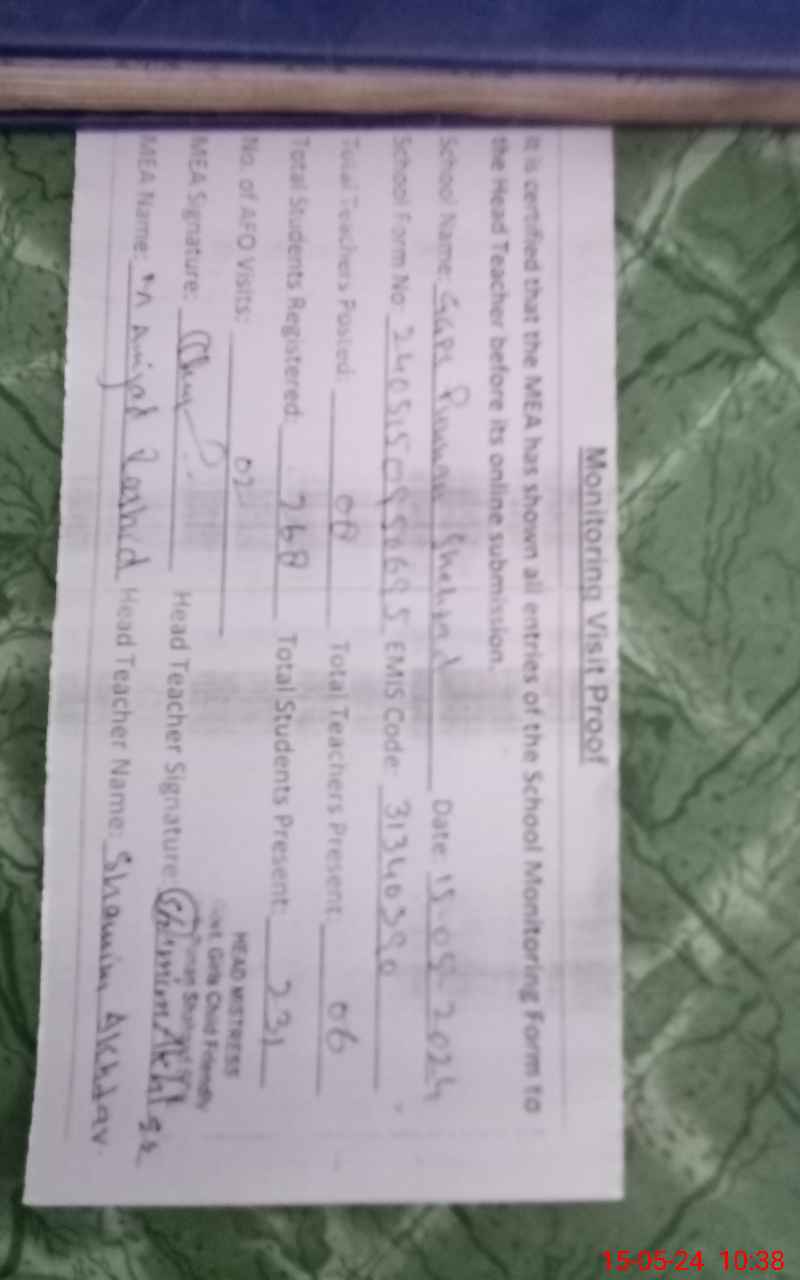 Monitoring Visit Proof
It is certified that the MEA has shown all entries of the School Monitoring Form to
the Head Teacher before its online submission.
School Name: Date: 15-05-2024
School Form No: EMIS Code: 31340390
Total Teachers Posted: 08 Total Teachers Present: 06
Total Students Registered: 268 Total Students Present: 231
No. of AFO Visits: 02
HEAD MISTRESS
Govt. Girls Child Friendly
MEA Signature: Head Teacher Signature: Shamim Akhtar
MEA Name: M Amjad Rashid Head Teacher Name: Shamim Akhtar
15-05-24 10:38